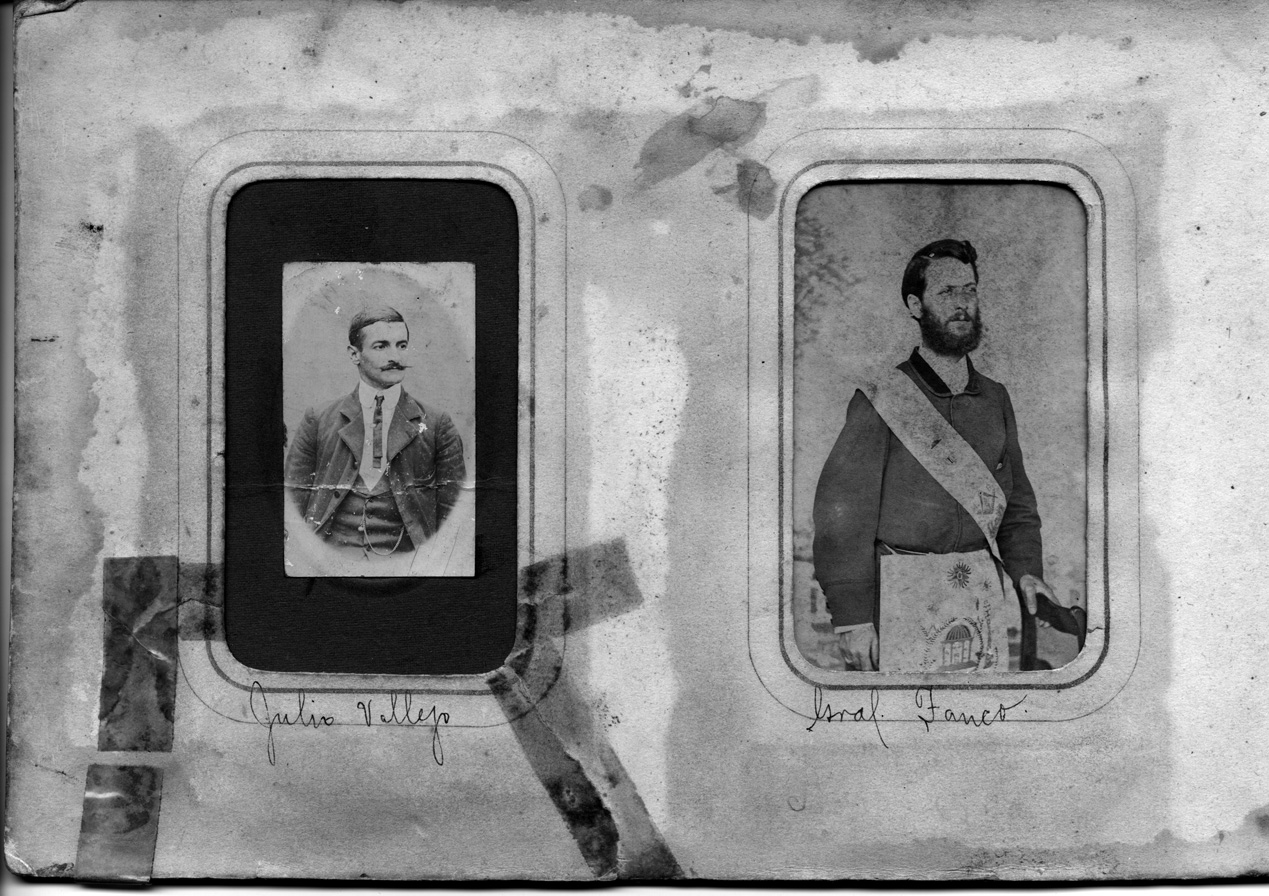 Julio Vallejo
Gral. Fanco.